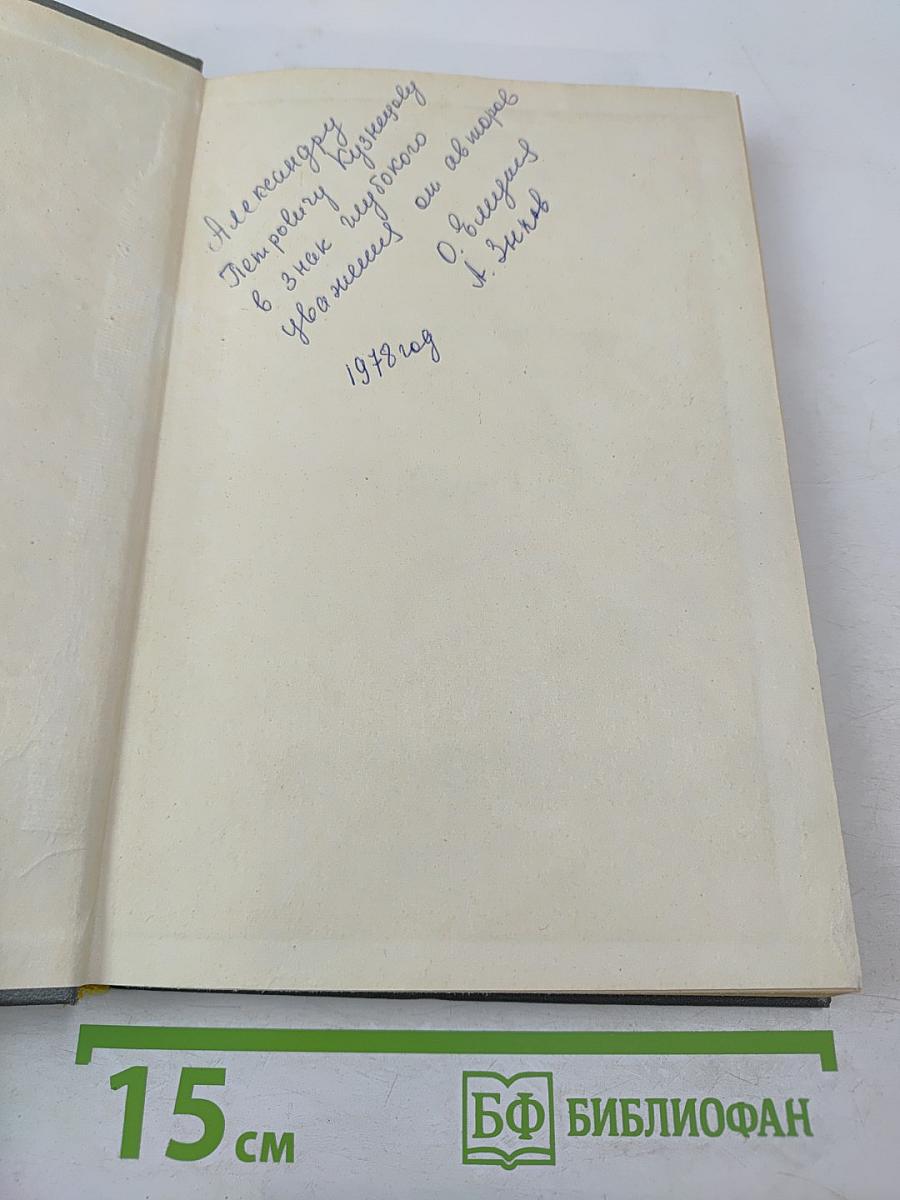 Александру
Петровичу Кузнецову
в знак глубокого
уважения от авторов
О.
А. Зыков
1978 год
15 см
БФ БИБЛИОФАН